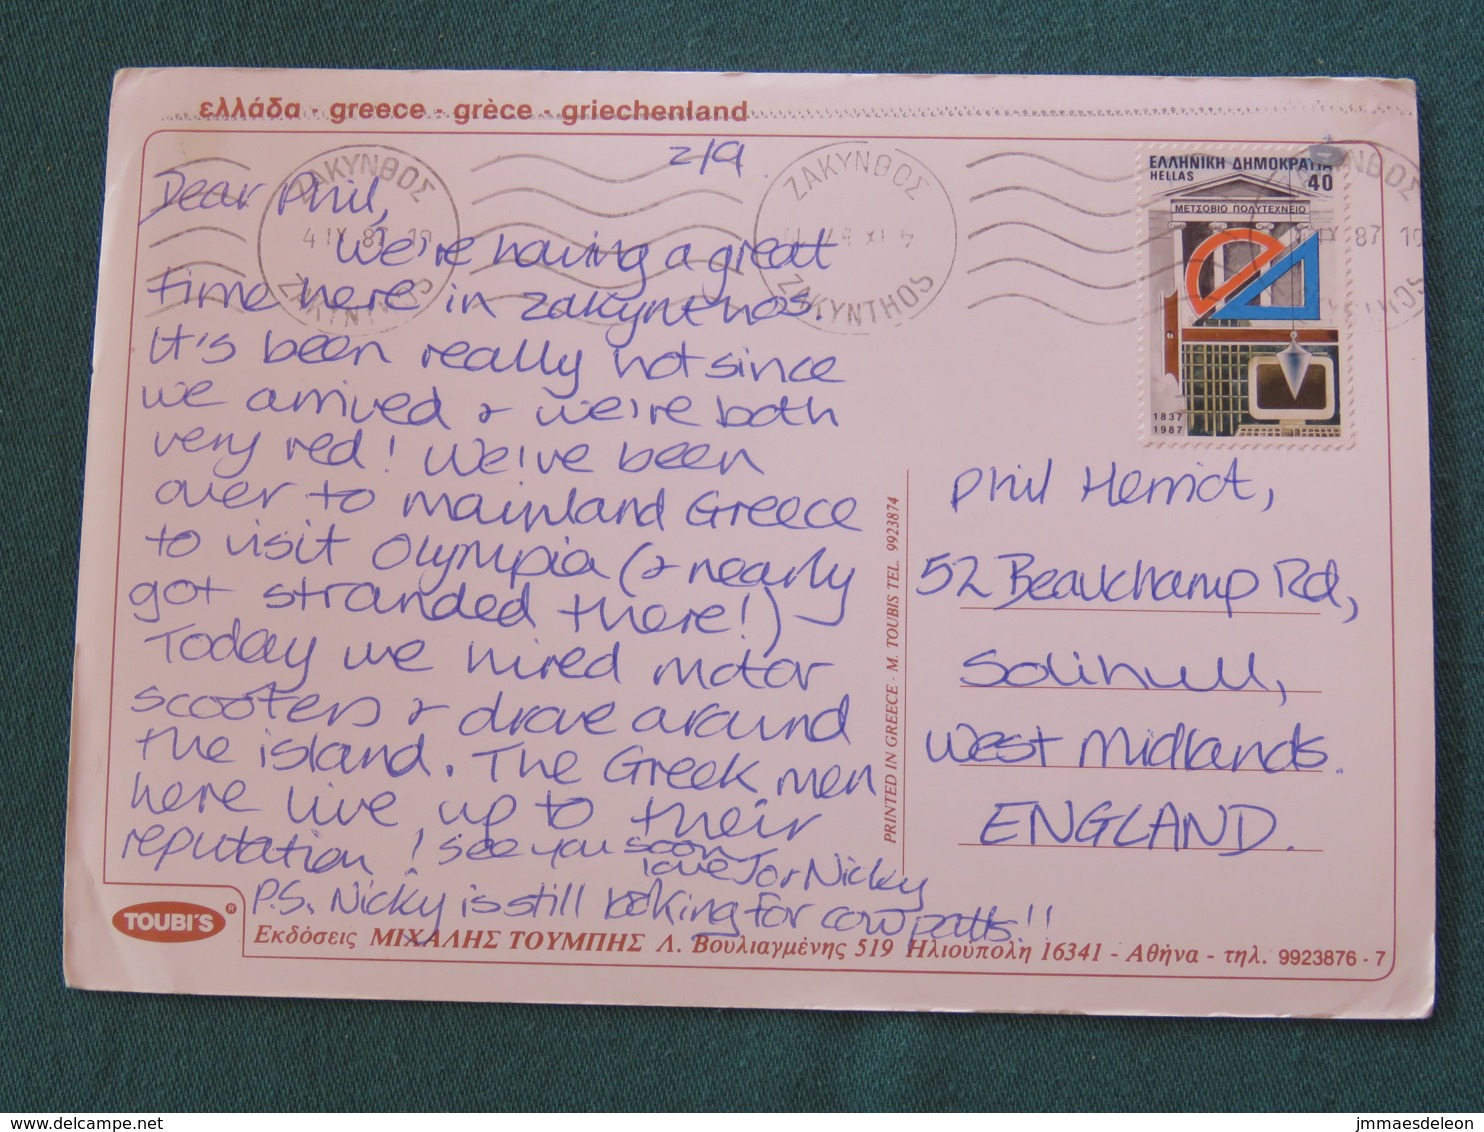 ελλάδα - greece - grèce - griechenland
2/9
Dear Phil,
We're having a great
time here in Zakynthos.
It's been really hot since
we arrived & we're both
very red! We've been
over to mainland Greece
to visit Olympia (& nearly
got stranded there!)
Today we hired motor
scooters & drove around
the island. The Greek men
here live up to their
reputation! See you soon
love Jo & Nicky
P.S. Nicky is still looking for cowpatts!!
ΖΑΚΥΝΘΟΣ
4 IX 87 10
ΖΑΚΥΝTHOS
ΖΑΚΥΝΘΟΣ
4 IX 87
ZAKYNTHOS
ΕΛΛΗΝΙΚΗ ΔΗΜΟΚΡΑΤΙΑ
HELLAS 40
ΜΕΤΣΟΒΙΟ ΠΟΛΥΤΕΧΝΕΙΟ
1837
1987
IX 87 10
Phil Herriot,
52 Beauchamp Rd,
Solihull,
West Midlands.
ENGLAND.
PRINTED IN GREECE - M. TOUBIS TEL. 9923874
TOUBI'S ®
Εκδόσεις ΜΙΧΑΛΗΣ ΤΟΥΜΠΗΣ Λ. Βουλιαγμένης 519 Ηλιούπολη 16341 - Αθήνα - τηλ. 9923876 - 7
delcampe.net
jmmaesdeleon